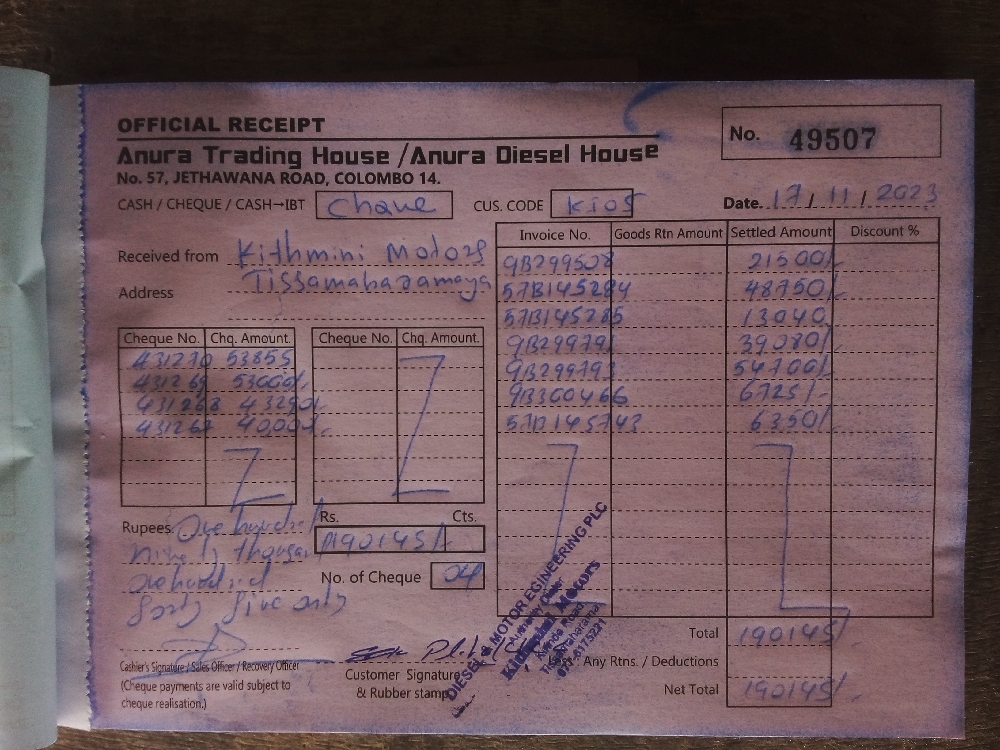 OFFICIAL RECEIPT
No. 49507
Anura Trading House / Anura Diesel House
No. 57, JETHAWANA ROAD, COLOMBO 14.
CASH / CHEQUE / CASH→IBT
CUS. CODE
Date. 17/11/2023
Received from Kithmini Motors
Address Tissamaharamaya
Invoice No. Goods Rtn Amount Settled Amount Discount %
9B299508 21500/-
57B145284 48750/-
57B145285 13040
39080/-
9B299793 54700/-
9B300466 6725/-
145743 6350/-
Cheque No. Chq. Amount. Cheque No. Chq. Amount.
431270 53855
431269 53000/-
431268 43290/-
431267 40,000/-
Rupees One hundred
ninety thousand
one hundred
forty five only
Rs. Cts.
190145/-
No. of Cheque 04
Total 190145/-
Less: Any Rtns. / Deductions
Net Total 190145/-
Cashier's Signature / Sales Officer / Recovery Officer
(Cheque payments are valid subject to
cheque realisation.)
Customer Signature
& Rubber stamp
DIESEL & MOTOR EGINEERING PLC
Motors